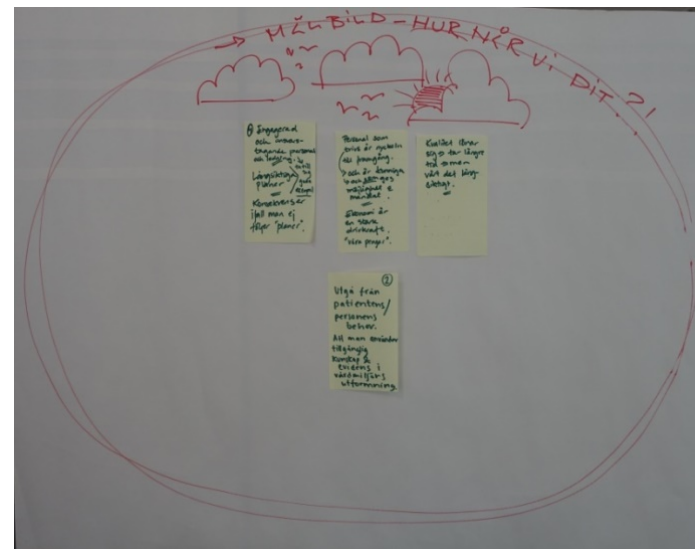 → MÅLBILD - HUR NÅR Vi DIT...?!
① Engagerad
och
tagande personal
och ledning.
Långsiktiga
planer
=
Konsekvenser
ifall man ej
följer "planer".
Personal som
trivs är nyckeln
till framgång.
och är lämpliga
och ges
möjlighet &
mandat.
=
Ekonomi är
en stark
drivkraft.
"våra pengar".
Kvalitet lönar
sig → tar längre
tid men
värt det lång-
siktigt.
=
②
Utgå från
patientens/
personens
behov.
Att man använder
tillgänglig
kunskap &
evidens i
vårdmiljöns
utformning